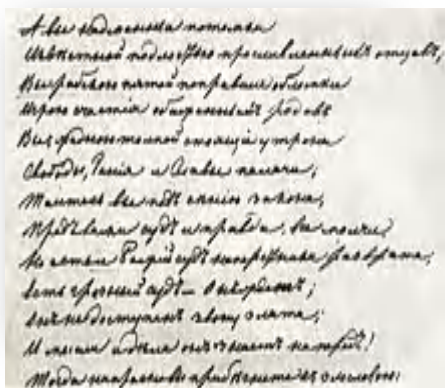 А вы надменные потомки
Извѣстной подлостью прославленныхъ отцовъ,
рабскою пятой поправшіе обломки
Игрою счастія обиженныхъ родовъ
Вы жадною толпой стоящіе у трона
Свободы, Генія и Славы палачи;
Таитесь вы подъ сѣнію закона,
Предъ вами судъ и правда, все молчи!
Но есть и Божій судъ наперсники разврата,
Есть грозный судъ — онъ ждетъ;
Онъ не доступенъ звону злата;
И мысли и дѣла онъ знаетъ напередъ!
Тогда напрасно вы прибѣгнете къ злословью: